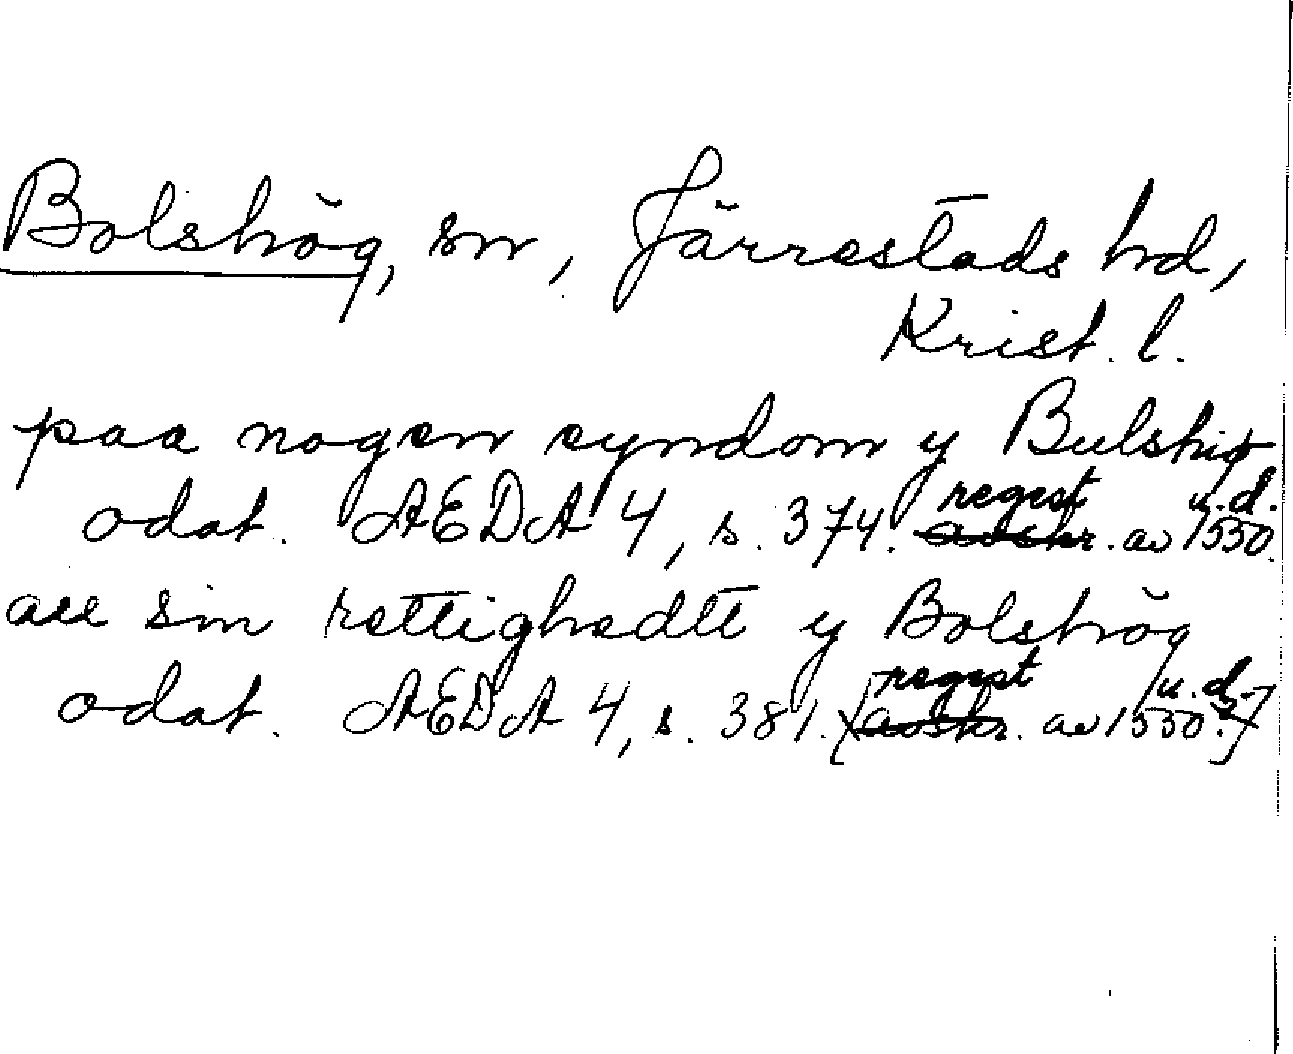 Bolshög, sn, Järrestads hd,
Krist. l.
paa nogen eyndom y Bulshig
odat. AEDA 4, s. 374. regest avskr. av u.d. 1550.
all sin rettighedtt y Bolshög
odat. AEDA 4, s. 381. [regest avskr. av u.d. 1550.]